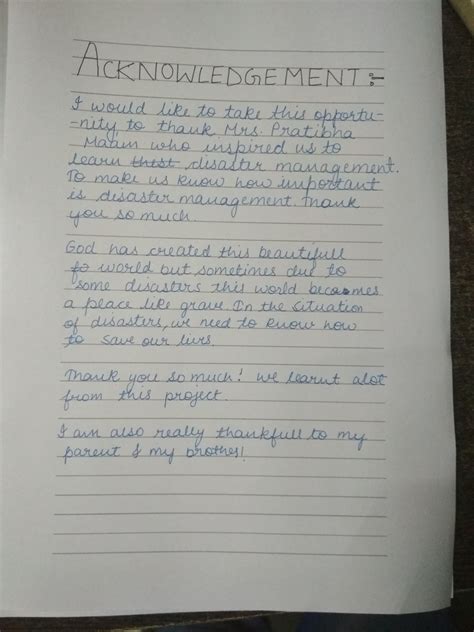 ACKNOWLEDGEMENT :-
I would like to take this opportu-
-nity, to thank Mrs. Pratibha
Maam who inspired us to
learn disaster management.
To make us know how important
is disaster management. Thank
you so much.
God has created this beautifull
world but sometimes due to
some disasters this world becomes
a place like grave. In the situation
of disasters, we need to know how
to save our livs.
Thank you so much! We learnt alot
from this project.
I am also really thankfull to my
parent & my brother!